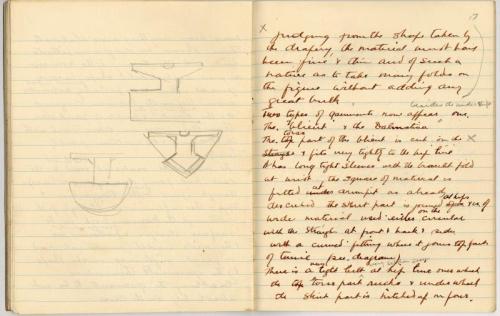 17
x Judging from the shape taken by
the drapery, the material must have
been fine & thin and of such a
nature as to take many folds on
the figure without adding any
great bulk
Two types of garments now appear
The "Bliant" & the Dalmatica
The top torso part of the Bliant is cut on the x
Straight & fits very tightly to the hip line
It has long tight sleeves with the
at wrist, the square of material is
fitted under at armpit as already
described the skirt part is joined at hips & is of
wide material used either circular
with the straight on the at front & back & sides
with a curved fitting where it joins top part
of tunic (see diagram)
There is a tight belt at hip line over which
the top torso part reaches & under which
the skirt part is hitched up on four.